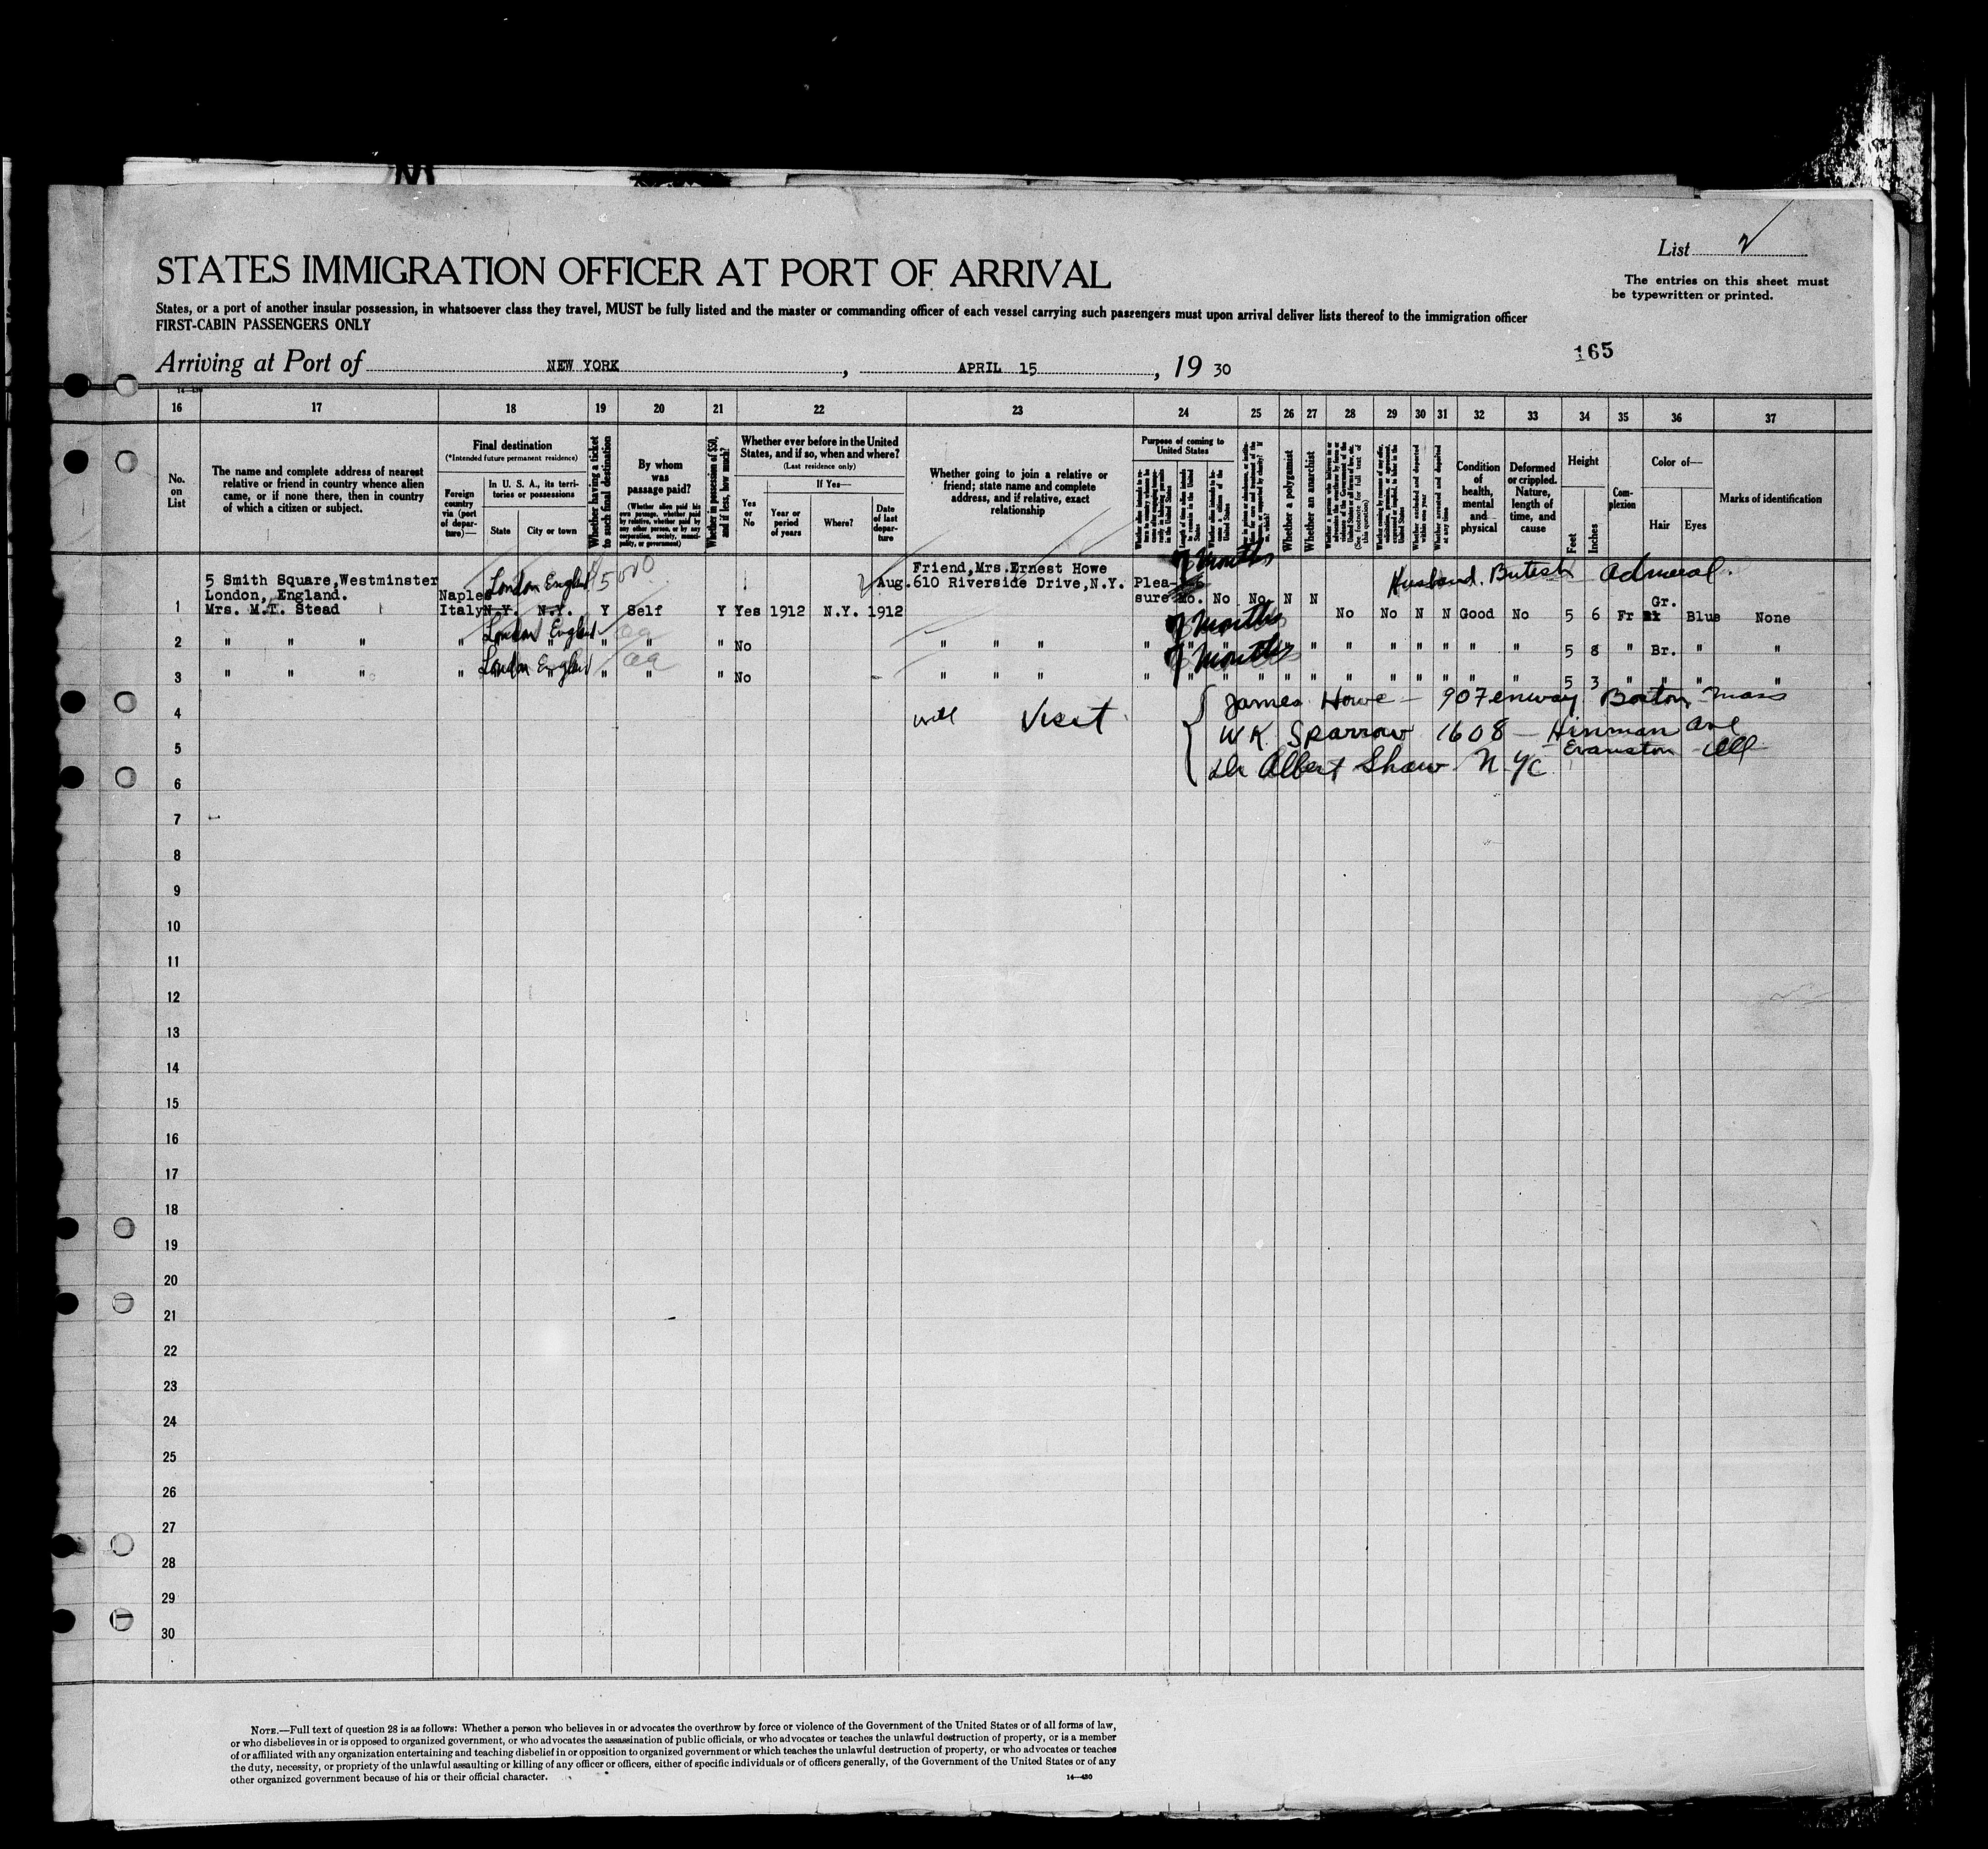 List 2
STATES IMMIGRATION OFFICER AT PORT OF ARRIVAL
The entries on this sheet must
be typewritten or printed.
States, or a port of another insular possession, in whatsoever class they travel, MUST be fully listed and the master or commanding officer of each vessel carrying such passengers must upon arrival deliver lists thereof to the immigration officer
FIRST-CABIN PASSENGERS ONLY
165
Arriving at Port of NEW YORK, APRIL 15, 19 30
16 17 18 19 20 21 22 23 24 25 26 27 28 29 30 31 32 33 34 35 36 37
No.
on
List
The name and complete address of nearest
relative or friend in country whence alien
came, or if none there, then in country
of which a citizen or subject.
Final destination
(*Intended future permanent residence)
Foreign
country
via (port
of depar-
ture)—
In U. S. A., its terri-
tories or possessions
State
City or town
Whether having a ticket
to such final destination
By whom
was
passage paid?
(Whether alien paid his
own passage, whether paid
by relative, whether paid by
any other person, or by any
corporation, society, munici-
pality, or government)
Whether in possession of $50,
and if less, how much?
Whether ever before in the United
States, and if so, when and where?
(Last residence only)
Yes
or
No
If Yes—
Year or
period
of years
Where?
Date
of last
depar-
ture
Whether going to join a relative or
friend; state name and complete
address, and if relative, exact
relationship
Purpose of coming to
United States
Whether a polygamist
Whether an anarchist
Condition
of
health,
mental
and
physical
Deformed
or crippled.
Nature,
length of
time, and
cause
Height
Feet
Inches
Com-
plexion
Color of—
Hair
Eyes
Marks of identification
7 Months
Friend, Mrs. Ernest Howe
5 Smith Square, Westminster London England 5000 Aug. 610 Riverside Drive, N.Y. Plea- Husband. British Admiral.
London, England. Naples sure Mo. No No N N Gr.
1 Mrs. M.T. Stead Italy N.Y. N.Y. Y Self Y Yes 1912 N.Y. 1912 No No N N Good No 5 6 Fr Blue None
London England 7 Months
2 " " " " " " " " No " " " " " " " " " " " " " " " " 5 8 " Br. " "
London England 7 Months
3 " " " " " " " " No " " " " " " " " " " " " " " " " 5 3 " " " "
4 will Visit James Howe — 90 Fenway Boston Mass
5 W K Sparrow 1608 — Hinman Ave
Evanston - Ill
6 Dr Albert Shaw N Y C
7
8
9
10
11
12
13
14
15
16
17
18
19
20
21
22
23
24
25
26
27
28
29
30
NOTE.—Full text of question 28 is as follows: Whether a person who believes in or advocates the overthrow by force or violence of the Government of the United States or of all forms of law,
or who disbelieves in or is opposed to organized government, or who advocates the assassination of public officials, or who advocates or teaches the unlawful destruction of property, or is a member
of or affiliated with any organization entertaining and teaching disbelief in or opposition to organized government or which teaches the unlawful destruction of property, or who advocates or teaches
the duty, necessity, or propriety of the unlawful assaulting or killing of any officer or officers, either of specific individuals or of officers generally, of the Government of the United States or of any
other organized government because of his or their official character.
14—430